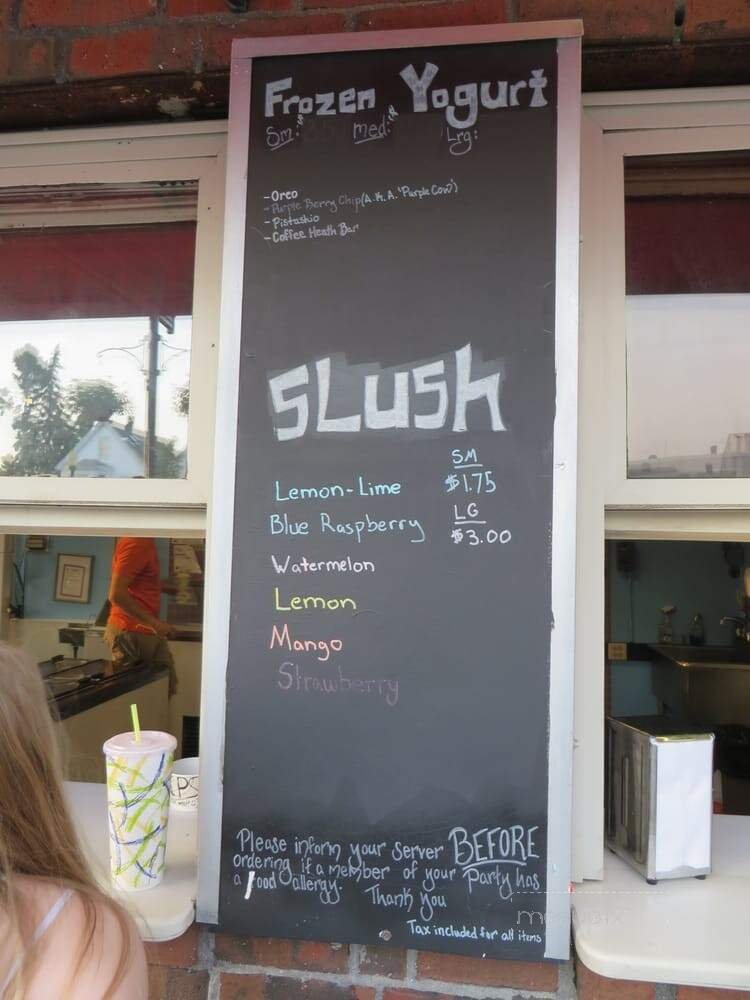 Frozen Yogurt
Sm: med: Lrg:
-Oreo
-Purple Berry Chip (A.K.A. "Purple Cow")
-Pistashio
-Coffee Heath Bar
SLUSH
SM
Lemon-Lime $1.75
LG
Blue Raspberry $3.00
Watermelon
Lemon
Mango
Strawberry
Please inform your server BEFORE
ordering if a member of your Party has
a food allergy. Thank you
Tax included for all items